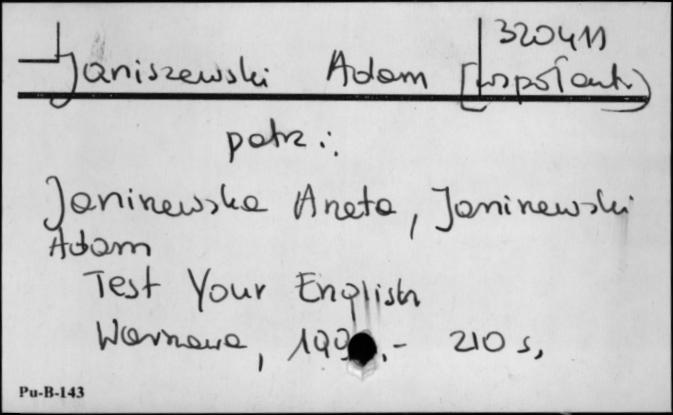 320411
Janiszewski Adam [współaut.)
patrz.:
Janiszewska Aneta, Janiszewski
Adam
Test Your English
Warszawa, 199 .- 210 s,
Pu-B-143